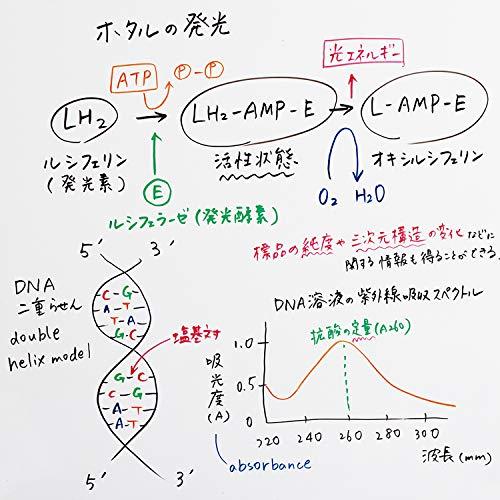 ホタルの発光
ATP
P-P
光エネルギー
LH2
LH2-AMP-E
L-AMP-E
ルシフェリン
(発光素)
活性状態
オキシルシフェリン
O2 H2O
E
ルシフェラーゼ(発光酵素)
標品の純度や三次元構造の変化などに
関する情報も得ることができる。
5' 3'
DNA
二重らせん
double
helix model
C-G
A-T
T-A
G-C
塩基対
G-C
C-G
A-T
A-T
5' 3'
DNA溶液の紫外線吸収スペクトル
抗酸の定量(A260)
吸光度(A)
1.0
0.5
0
220 240 260 280 300
波長(mm)
absorbance